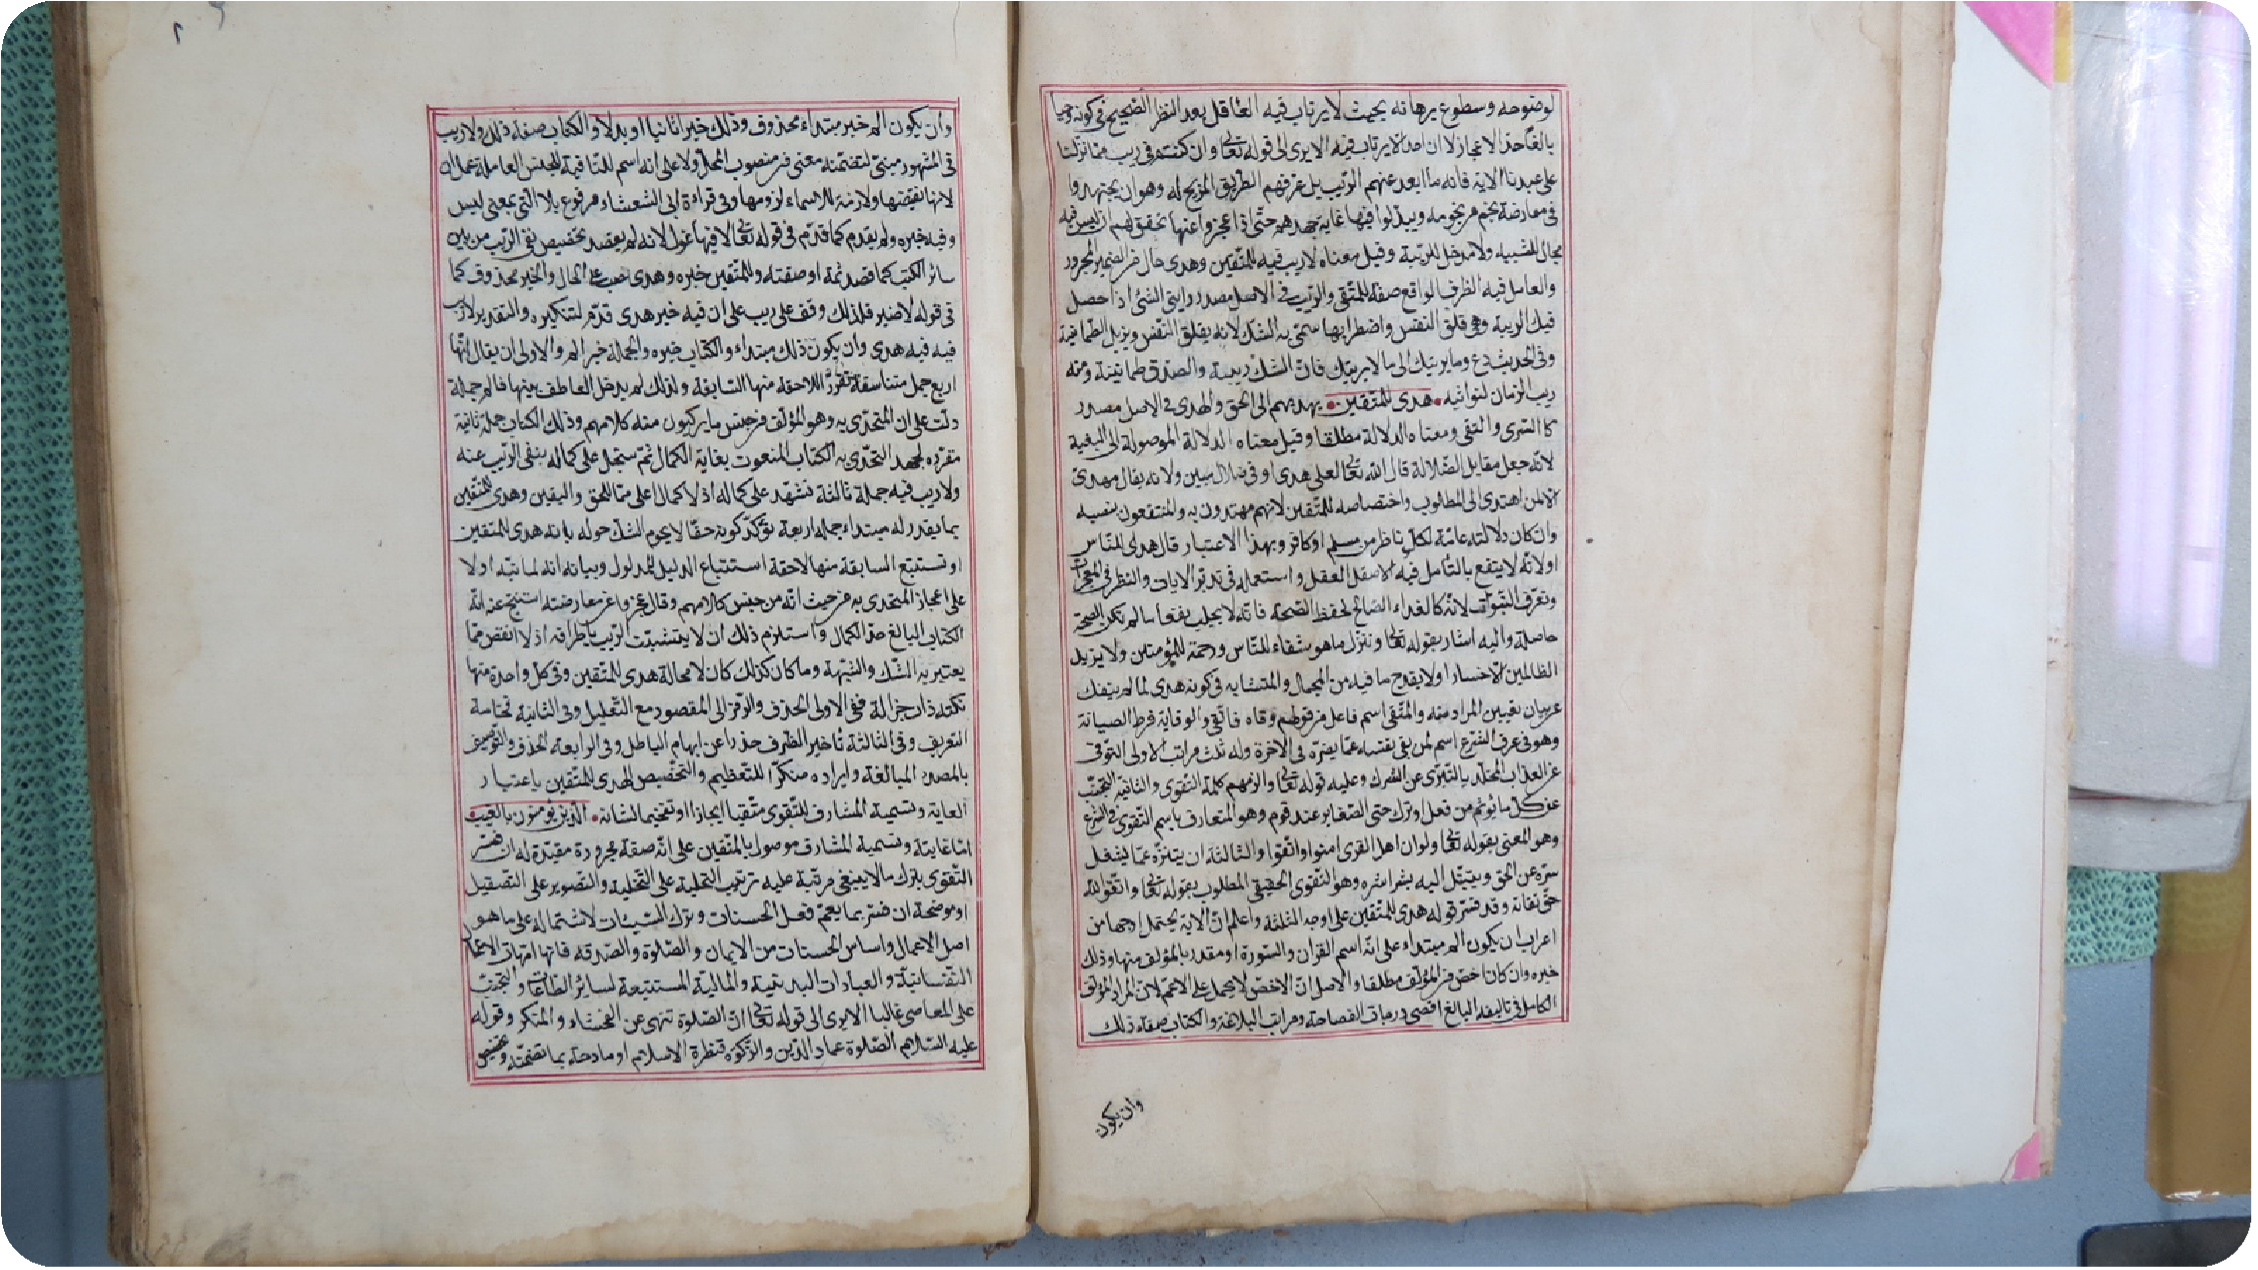 لوضوحه وسطوع برهانه بحيث لا يرتاب فيه العاقل بعد النظر الصحيح في كونه وحيا
بالغا حد الاعجاز لا ان احدا لا يرتاب فيه الا يرى الى قوله تعالى وان كنتم في ريب مما نزلنا
على عبدنا الاية فانه ما ابعد عنهم الريب بل عرفهم الطريق المزيح له وهو ان يجتهدوا
في معارضة نجم من نجومه ويبذلوا فيها غاية جهدهم حتى اذا عجزوا عنها تحقق لهم ان ليس فيه
مجال للشبهه ولا مدخل للريبة وقيل معناه لا ريب فيه للمتقين وهدى حال من الضمير المجرور
والعامل فيه الظرف الواقع صفة للمتقى والريب في الاصل مصدر رابني الشئ اذا حصل
فيك الريبة وهي قلق النفس واضطرابها سمى به الشك لانه يقلق النفس ويزيل الطمانينة
وفي الحديث دع ما يريبك الى ما لا يريبك فان الشك ريبة والصدق طمانينة ومنه
ريب الزمان لنوائبه هدى للمتقين يهديهم الى الحق والهدى في الاصل مصدر
كالسرى والتقى ومعناه الدلالة مطلقا وقيل معناه الدلالة الموصولة الى البغية
لانه جعل مقابل الضلالة قال الله تعالى لعلى هدى او في ضلال مبين ولانه يقال مهدى
الا لمن اهتدى الى المطلوب واختصاصه للمتقين لانهم مهتدون به والمنتفعون بنصبه
وان كان دلالته عامة لكل ناظر من مسلم او كافر وبهذا الاعتبار قال هدى للناس
اولانه لا ينتفع بالتأمل فيه الا صقل العقل واستعمله في تدبر الايات والنظر في المعجزات
وتعرف النبوات لانه كالغداء الصالح لحفظ الصحة فانه لا يجلب نفعا مالم تكن الصحة
حاصلة واليه اشار بقوله تعالى وننزل ماهو شفاء للناس ورحمة للمؤمنين ولا يزيد
الظالمين الا خسارا ولا يقدح ما فيه من المجمل والمتشابه في كونه هدى لما لم ينفك
عن بيان تعيين المراد منه والمتقى اسم فاعل من قولهم وقاه فاتقى والوقاية فرط الصيانة
وهو في عرف الشرع اسم لمن يقى نفسه عما يضره في الاخرة وله ثلث مراتب الاولى التوقى
عن العذاب المخلد بالتبرى عن الشرك وعليه قوله تعالى والزمهم كلمة التقوى والثانية التجنب
عن كل ما يوثم من فعل وترك حتى الصغاير عند قوم وهو المتعارف باسم التقوى في الشرع
وهو المعنى بقوله تعالى ولو ان اهل القرى امنوا واتقوا والثالثة ان يتنزه عما يشغل
سره عن الحق ويتبتل اليه بشراشره وهو التقوى الحقيقي المطلوب بقوله تعالى واتقوا الله
حق تقاته وقد فسر قوله هدى للمتقين على اوجه الثلثة واعلم ان الاية يحتمل اوجها من
اعراب ان يكون الم مبتداء على انه اسم القران والسورة او مقدر بالمؤلف منها وذلك
خبره وان كان اخص من المؤلف مطلقا والاصل ان الاخص لا يحمل على الاعم لان المراد المؤلف
الكامل في تاليفه البالغ اقصى درجات الفصاحة ومراتب البلاغة والكتاب صفة ذلك
وان يكون
وان يكون الم خبر مبتداء محذوف وذلك خبرا ثانيا او بدلا والكتاب صفة ذلك ولا ريب
في المشهور مبنى لتضمنه معنى من منصوب المحل ولا على انه اسم للنافية للجنس العاملة عمل ان
لانها نقيضتها ولازمة للاسماء لزومها وفي قراءة ابي الشعشاء مرفوع بلا التي بمعنى ليس
وفيه خبره ولم يقدم كما قدم في قوله تعالى لا فيها غول لانه لم يقصد تخصيص نفى الريب من بين
سائر الكتب كما قصد ثمة او صفته وللمتقين خبره وهدى نصب على الحال والخبر محذوف كما
في قوله لا ضير فلذلك وقف على ريب على ان فيه خبر هدى قدم لتنكيره والتقدير لا ريب
فيه فيه هدى وان يكون ذلك مبتداء والكتاب خبره والجملة خبر الم والاولى ان يقال انها
اربع جمل متناسقة تقرر اللاحقة منها السابقة ولذلك لم يدخل العاطف بينها فالم جملة
دلت على ان المتحدى به وهو المؤلف من جنس ما يركبون منه كلامهم وذلك الكتاب جملة ثانية
مقرره لجهة التحدى به الكتاب المنعوت بغاية الكمال ثم سجل على كماله بنفى الريب عنه
ولا ريب فيه جملة ثالثة تشهد على كماله اذ لا كمال اعلى مما للحق واليقين وهدى للمتقين
بما يقدر له مبتداء جملة اربعة تؤكد كونه حقا لا يحوم الشك حوله بانه هدى للمتقين
او تستتبع السابقة منها لاحقة استتباع الدليل للمدلول وبيانه انه لما نبه اولا
على اعجاز المتحدى به من حيث انه من جنس كلامهم وقال عجزوا عن معارضته استنتج عنه انه
الكتاب البالغ حد الكمال واستلزم ذلك ان لا يتشبث الريب باطرافه اذ لا انقص مما
يعتبر به الشك والشبهة وما كان كذلك كان لا محالة هدى للمتقين وفي كل واحدة منها
نكتة ذات جزالة ففي الاولى الحذف والرمز الى المقصود مع التعليل وفي الثانية فخامة
التعريف وفي الثالثة تاخير الظرف حذرا عن ابهام الباطل وفي الرابعة الحذف والتوصيف
بالمصدر المبالغة وايراده منكرا للتعظيم والتخصيص الهدى للمتقين باعتبار
الغاية وتسمية المشارف للتقوى متقيا ايجازا او تفخيما لشانه الذين يؤمنون بالغيب
اما غايتة وتسمية المشارف موصول بالمتقين على انه صفة مجرورة مقيدة له ان فسر
التقوى بترك مالا ينبغي مرتبة عليه ترتيب التحلية على التخلية والتصوير على التصقيل
او موضحة ان فسر بما يعم فعل الحسنات وترك السيئات لاشتماله على ما هو
اصل الاعمال واساس الحسنات من الايمان والصلوة والصدقه فانها امهات الاعمال
النفسانية والعبادات البدنية والمالية المستتبعة لسائر الطاعات والتجنب
على المعاصي غالبا الا يرى الى قوله تعالى ان الصلوة تنهى عن الفحشاء والمنكر وقوله
عليه السلام الصلوة عماد الدين والزكوة قنطرة الاسلام او مادحة بما تضمنه وتخصيص